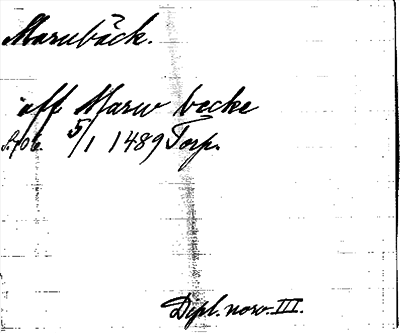 Marubäck.
aff Marw becke
s. 706. 5/1 1489 Torp.
Dipl. norv. III.